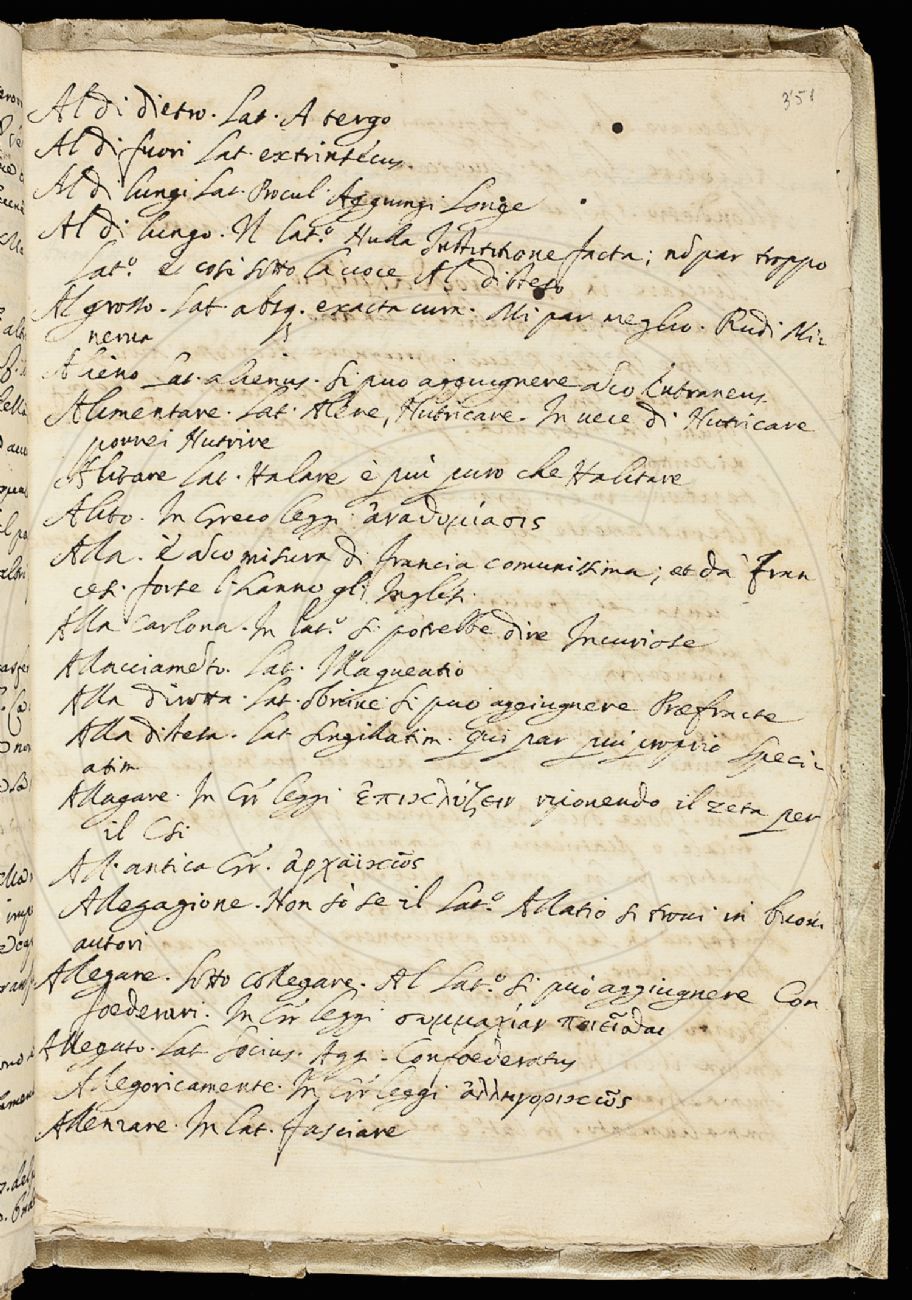 351
Al di dietro. Lat. A tergo
Al di fuori Lat. extrinsécus.
Al di lungi Lat. Procul. Aggiungi Longe
Al di lungo. Il Lat.º Nulla Intstitione facta; nõ par troppo
Lat.º e cosi sotto la uoce Al disteso
Al grosso. Lat. absq. exacta cura. Mi par meglio. Rudi Mi-
nerua
Alieno Lat. alienus. Si puo aggiugnere alco Extraneus.
Alimentare. Lat. Alere, Nutricare. In uece di Nutricare
porrei Nutrire
Alitare Lat. Halare è piú puro che Halitare
Alito. In Greco leggi ἀναθυμίασις
Alla. È alco misura di Francia comunissima; et da' Fran
cesi forse l'hanno gli Inglesi.
Alla Carlona. In Lat.º si potrebbe dire Incuriose
Allacciamẽto. Lat. Illaqueatio
Alla dirotta. Lat. obnixe. Si puó aggiugnere Præfracte
Alla distesa. Lat singillatim. Qui par piú proprio Speci-
atim
Allagare. In Gr̃ leggi ἐπικλύζειν riponendo il zeta per
il Csi
All'antica Gr̃. ἀρχαϊκῶς
Allegagione. Non só se il Lat.º Allatio si troui in buoni
autori
Allegare. Sotto collegare. Al Lat.º si puó aggiugnere Con
foederari. In Gr̃ leggi συμμαχίαν ποιεῖσθαι
Allegato. Lat Socius. Agg. Confoederatus
Allegoricamente. In Gr̃ leggi ἀλληγορικῶς
Allenzare. In Lat. Fasciare